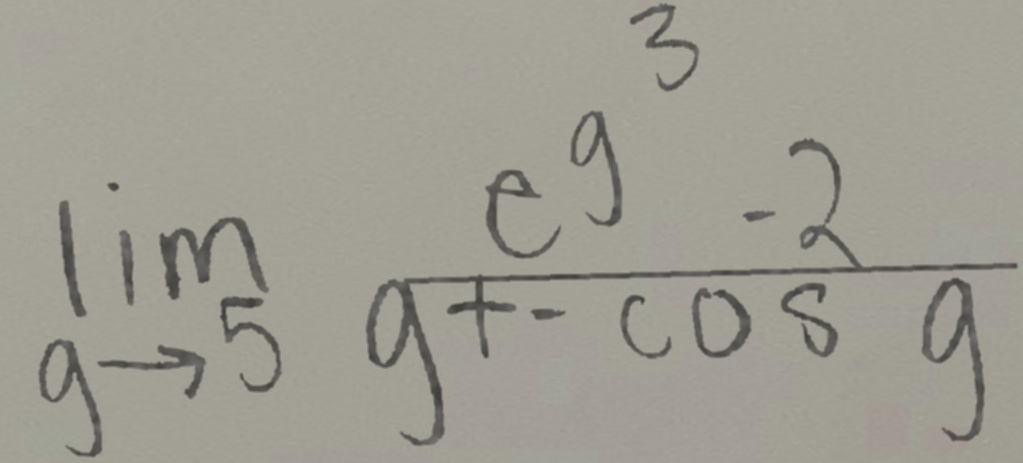 \lim_{g \to 5} \frac{e^{g^3} - 2}{g + - \cos g}